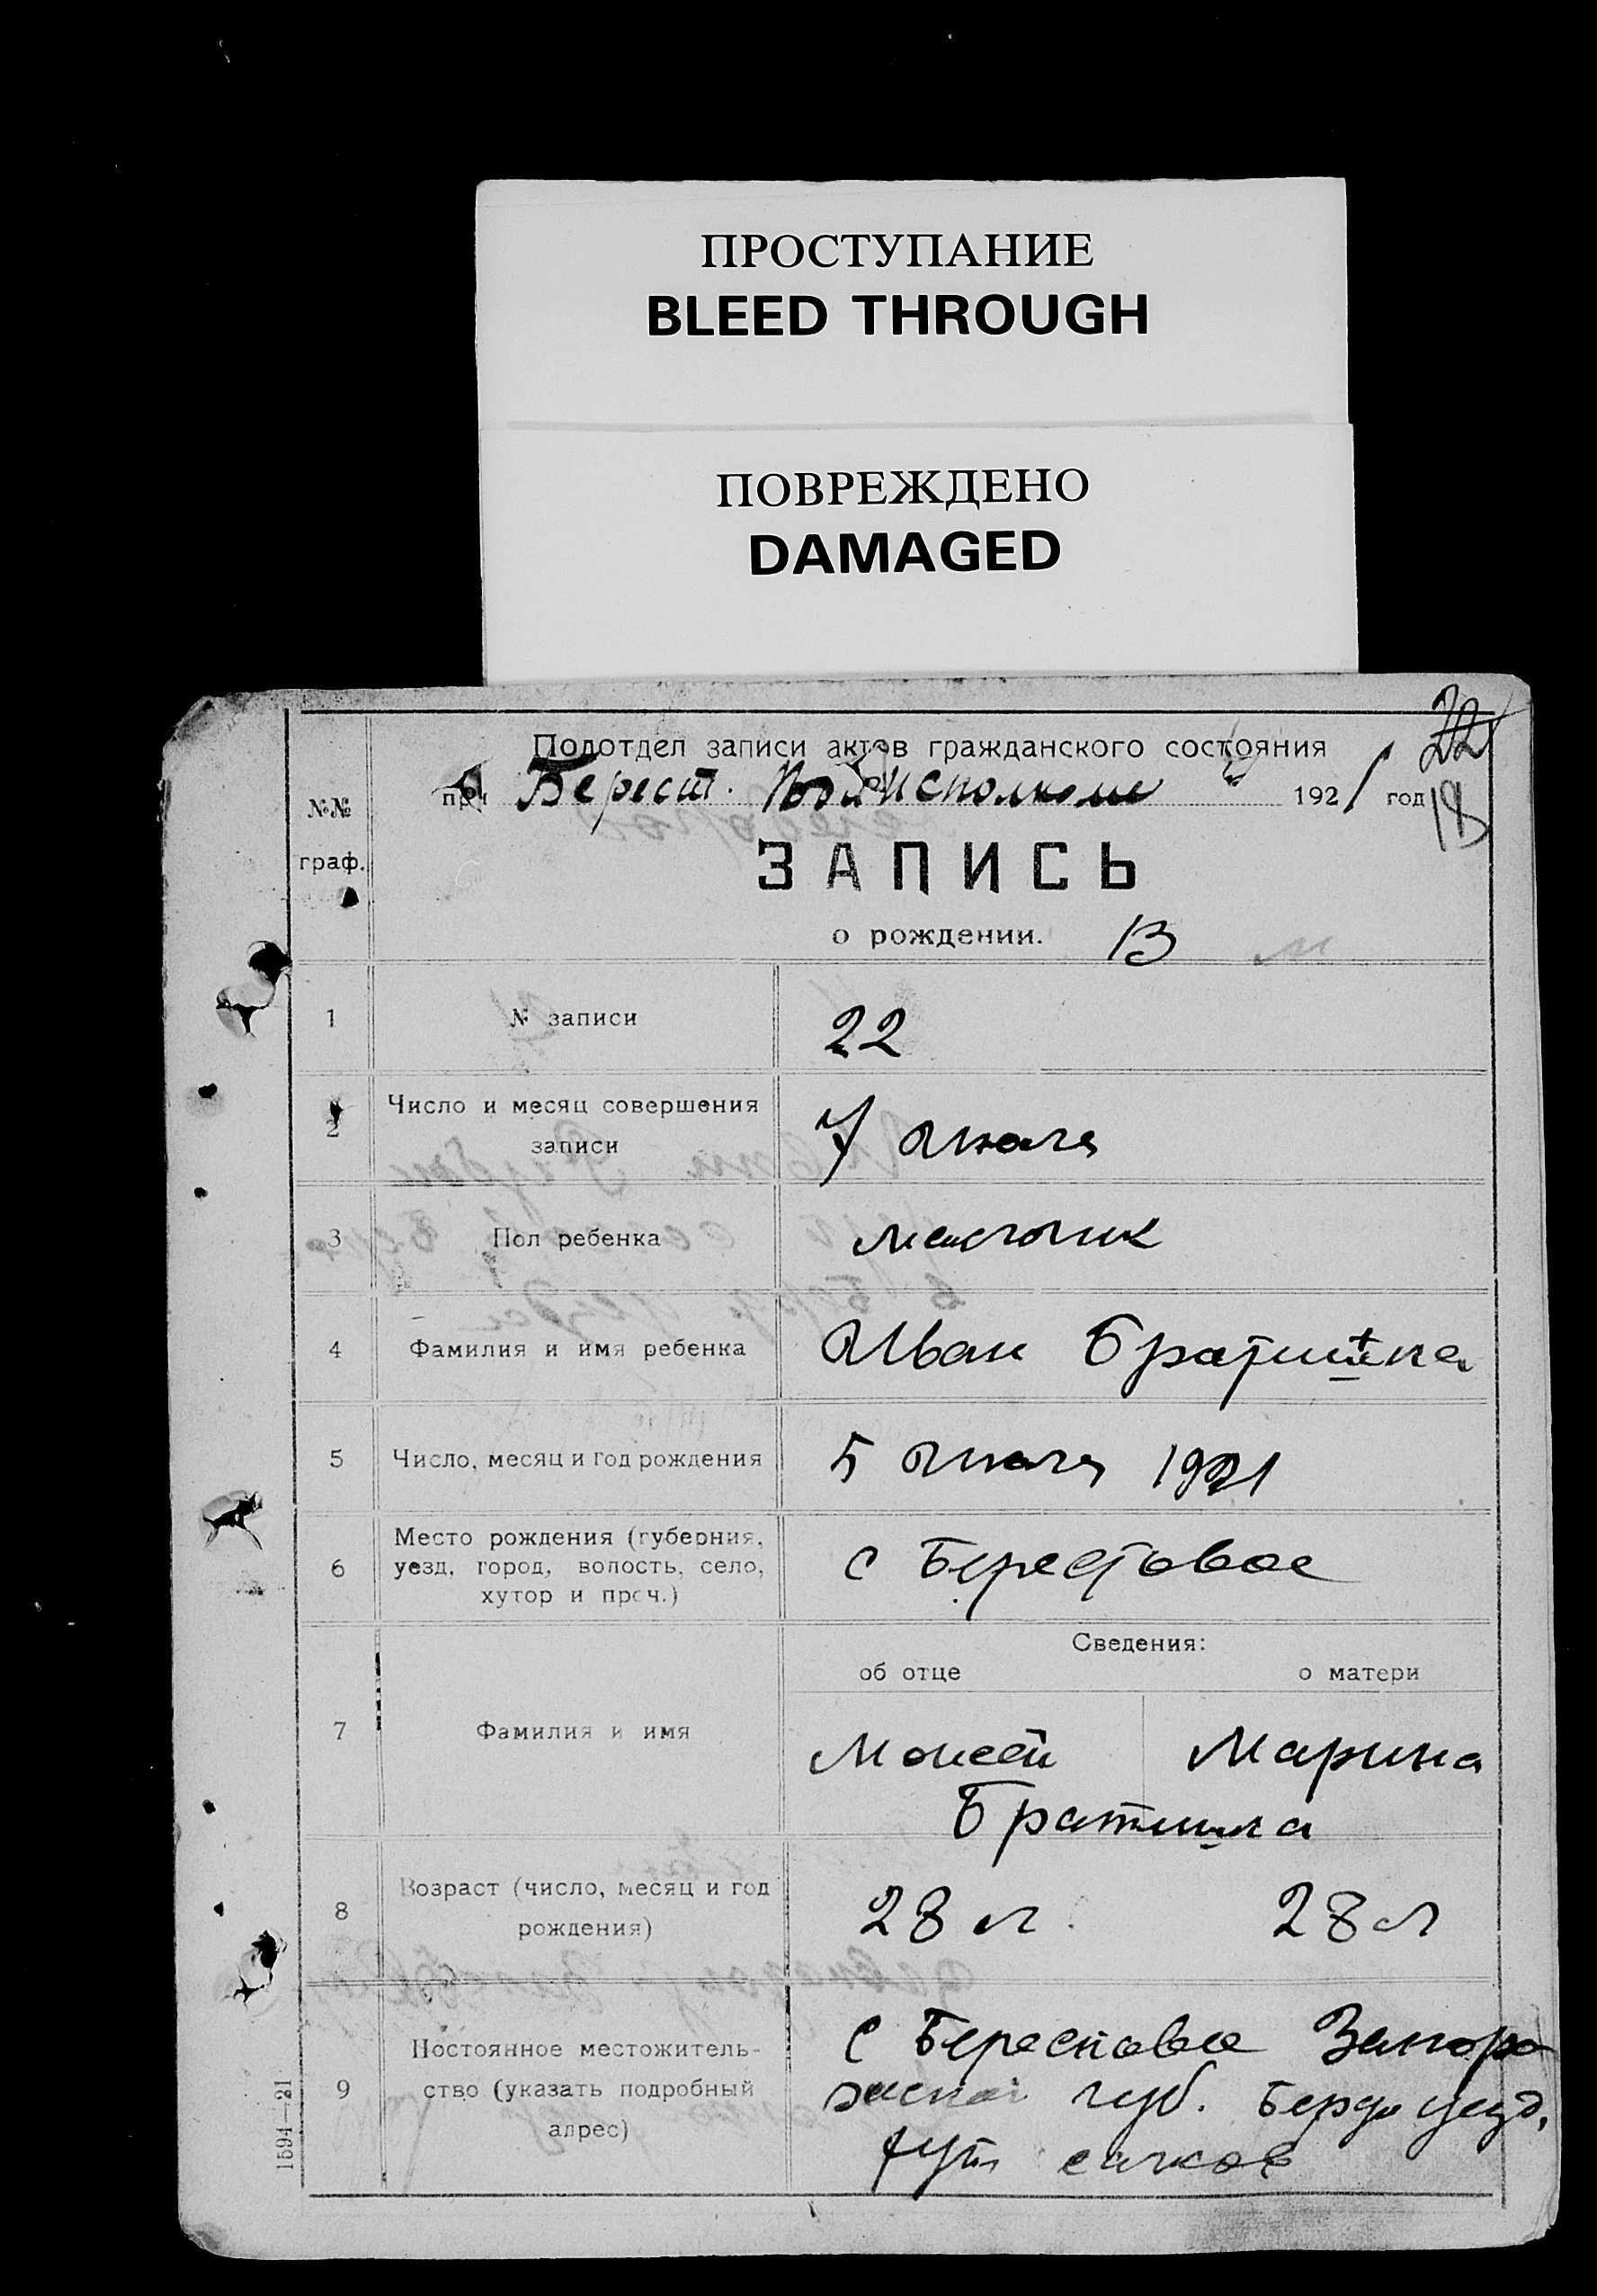 ПРОСТУПАНИЕ
BLEED THROUGH
ПОВРЕЖДЕНО
DAMAGED
22
Подотдел записи актов гражданского состояния
при Берест. исполкоме 1921 год
18
№№
граф.
ЗАПИСЬ
о рождении. 13
1 № записи 22
2 Число и месяц совершения
записи 7 Июля
3 Пол ребенка мальчик
4 Фамилия и имя ребенка Иван Братишка
5 Число, месяц и год рождения 5 Июля 1921
6 Место рождения (губерния,
уезд, город, волость, село,
хутор и проч.) с Берестовое
Сведения:
об отце о матери
7 Фамилия и имя Моисей Марина
Братишка
8 Возраст (число, месяц и год
рождения) 28 л. 28 л
9 Постоянное местожитель-
ство (указать подробный
адрес) с Берестовое Запоро
жской губ. Бердя уезд,
1594—21